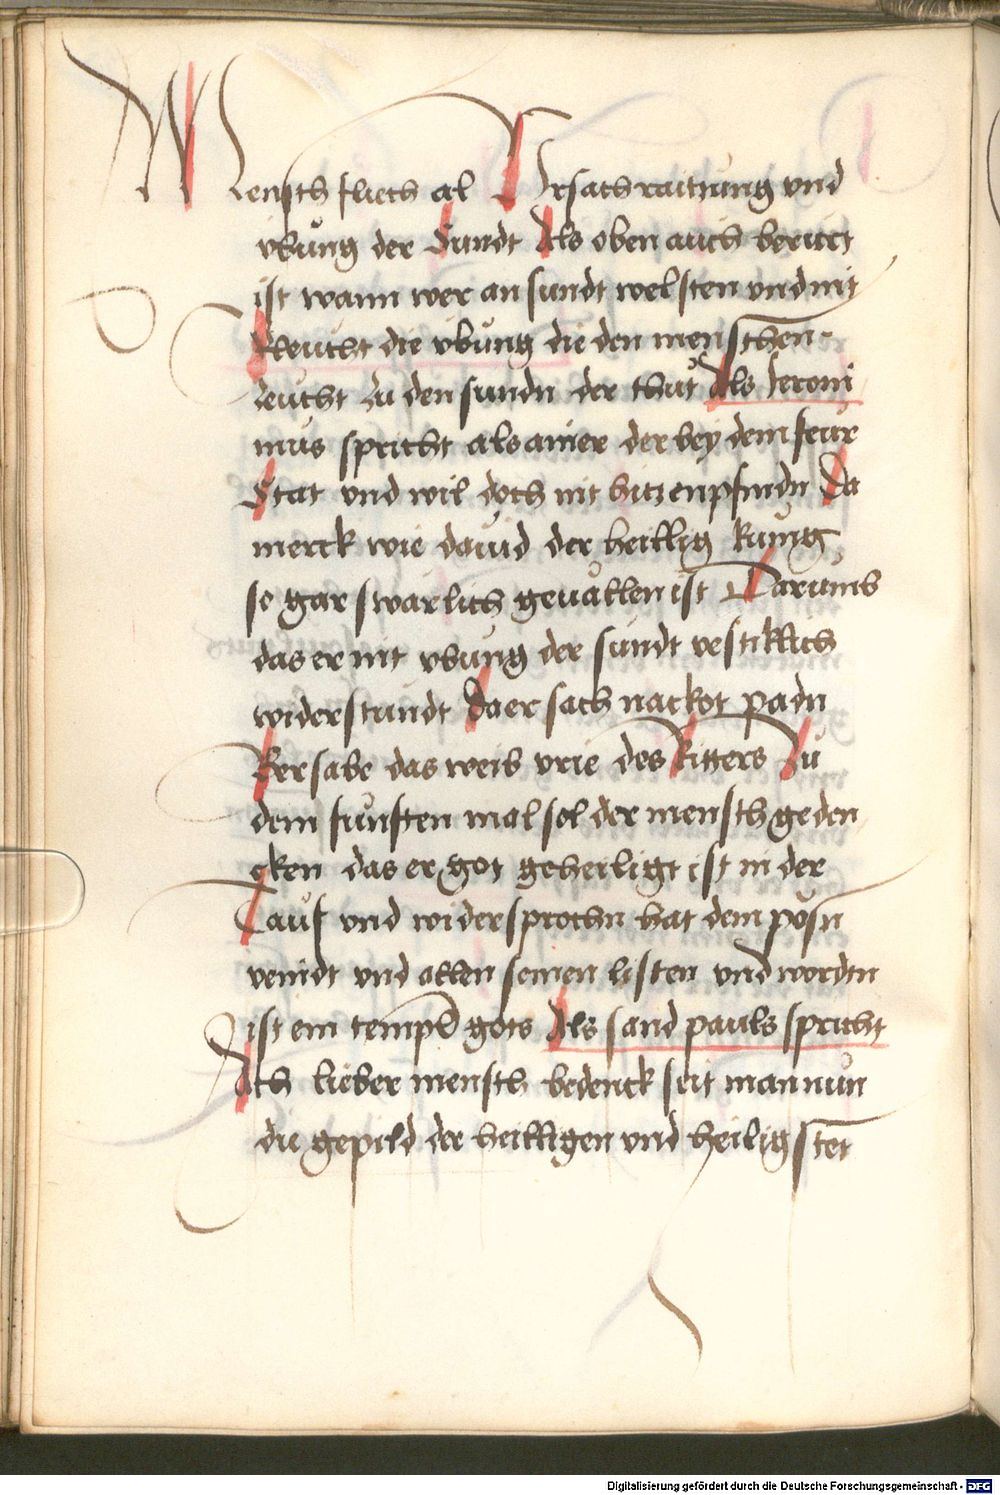 Mensch fluch al Vrsach raitzung vnd
vbung der Sundt Als oben auch berurt
ist wann wer an sundt wel sten vnd nit
fleucht die vbung die den menschen
zeucht zu den sundn der thut Als Jeroni
mus spricht als ainer der bey dem feur
Stat vnd wil doch nit hitz enpfindn Da
merck wie dauid der heillig kung
so gar swarlich geuallen ist Darumb
das er nit vbung der sundt vestikllich
widerstundt Da er sach nackot padn
Bersabe das weib vrie des Ritters Zu
dem funften mal sol der mensch geden
cken das er got geheiligt ist in der
Tauf vnd widersprochn hat dem posn
veindt vnd allen seinen listen vnd wordn
ist ein tempel gots Als sand pauls spricht
Ach lieber mensch bedenck seit man nun
die gepild der heilligen vnd heiligsten
Digitalisierung gefördert durch die Deutsche Forschungsgemeinschaft - DFG